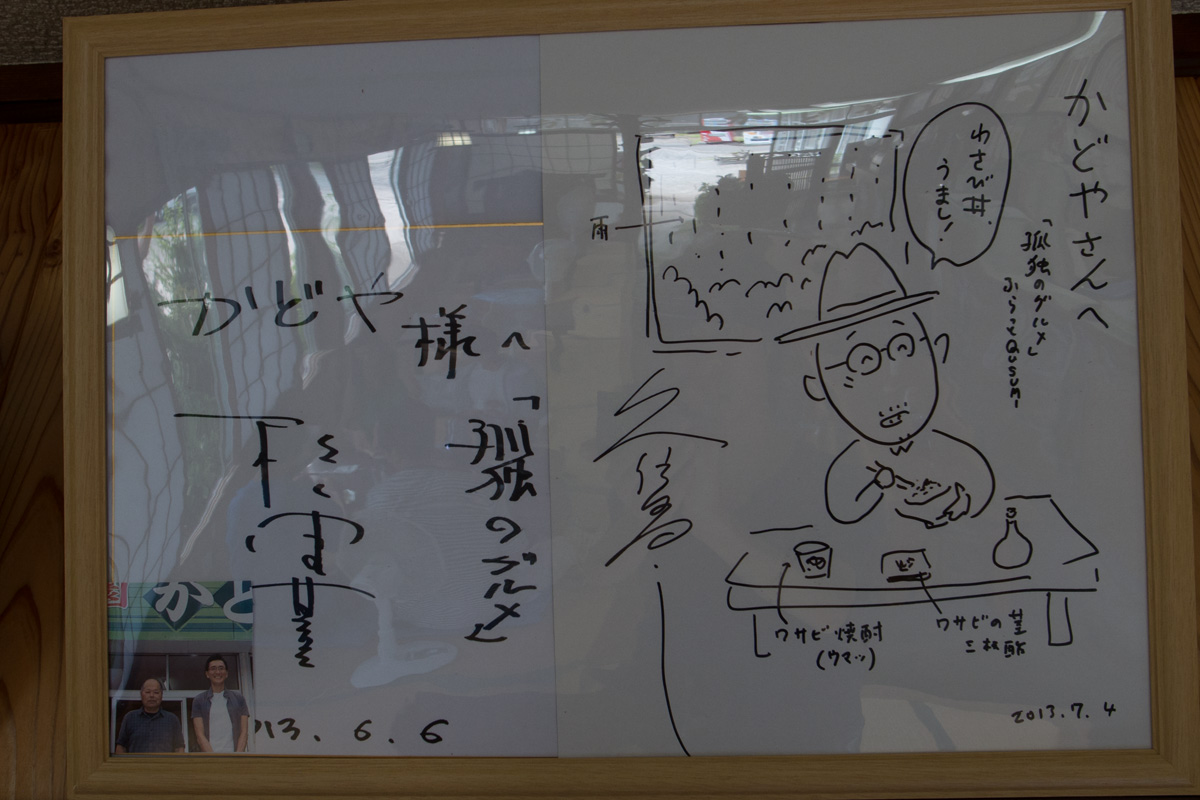 かどや
様へ
「孤独のグルメ」
2013.6.6
かど
かどやさんへ
「孤独のグルメ」
ふらっとQUSUMI
わさび丼、
うまし!
雨
久住昌之
ワサビ焼酎
(ウマッ)
ワサビの茎
三杯酢
2013.7.4